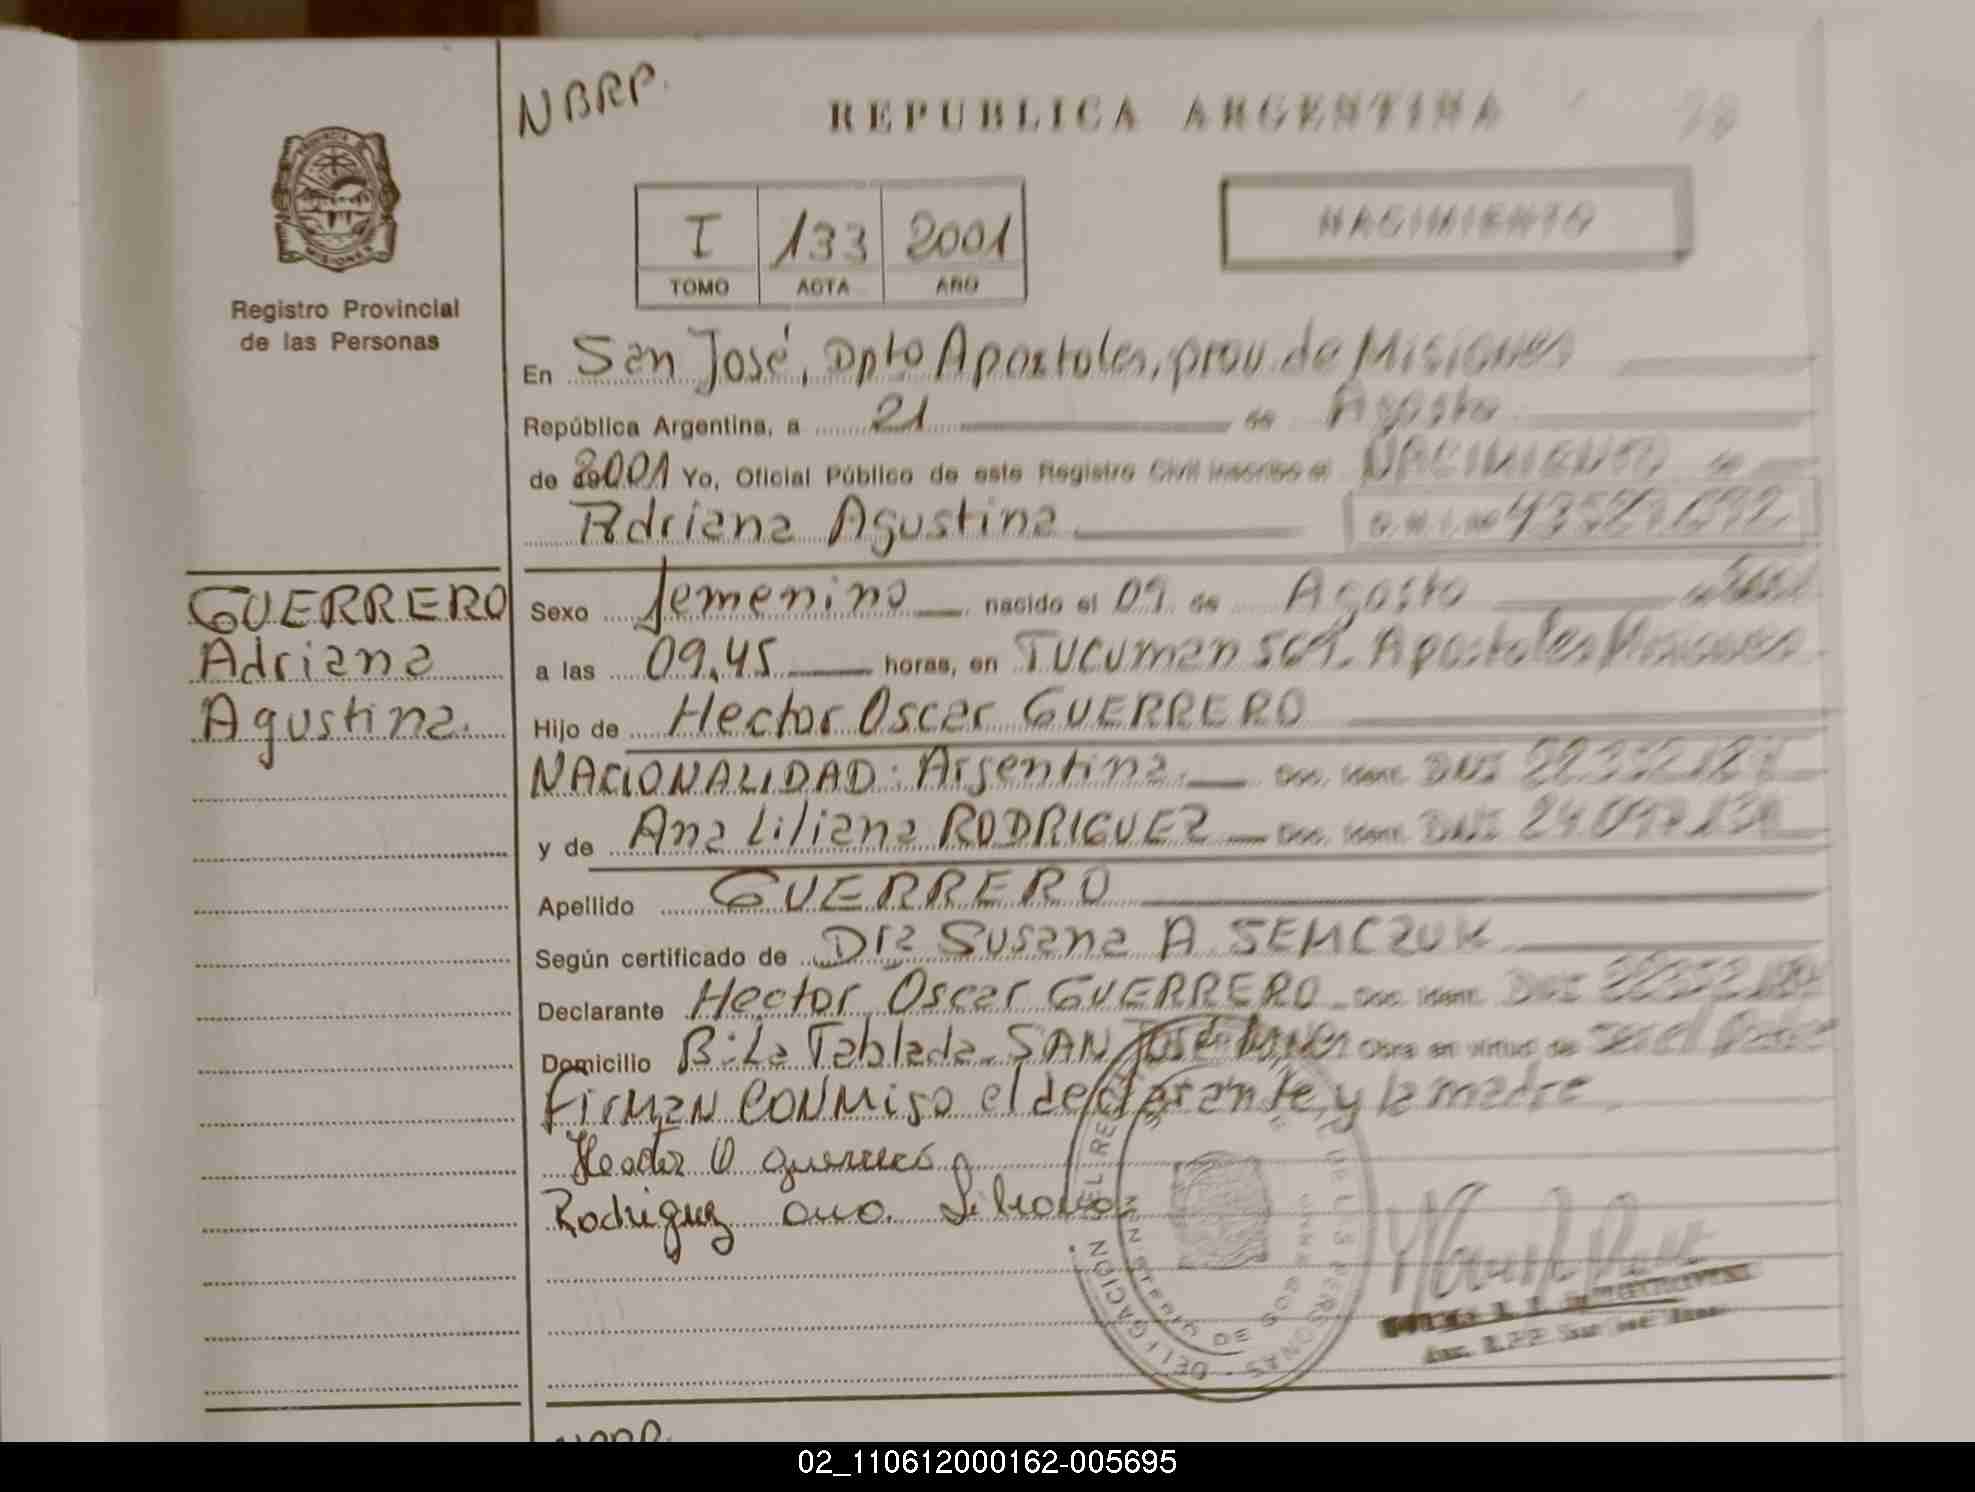 NBRP.
REPUBLICA ARGENTINA
PROVINCIA
MISIONES
Registro Provincial
de las Personas
I 133 2001
TOMO ACTA AÑO
NACIMIENTO
En San José, Dpto Apostoles, prov. de Misiones
República Argentina, a 21 de Agosto
de 2001 Yo, Oficial Público de este Registro Civil inscribo el NACIMIENTO de
Adriana Agustina D.N.I. Nº
GUERRERO
Adriana
Agustina.
Sexo femenino nacido el 09 de Agosto
a las 09,45 horas, en TUCUMAN 569. Apostoles Misiones
Hijo de Hector Oscar GUERRERO
NACIONALIDAD: Argentina. Doc. Ident. DNI
y de Ana Liliana RODRIGUEZ Doc. Ident. DNI
Apellido GUERRERO
Según certificado de Dra Susana A. SEMCZUK
Declarante Hector Oscar GUERRERO Doc. Ident. DNI
Domicilio B: La Tablada. SAN José Obra en virtud de ser el Padre
Firman CONMigo el declarante y la madre
Hector O guerrero
Rodriguez ana Liliana
DELEGACION DEL REGISTRO DE LAS PERSONAS
MINISTERIO DE GOBIERNO
02_110612000162-005695